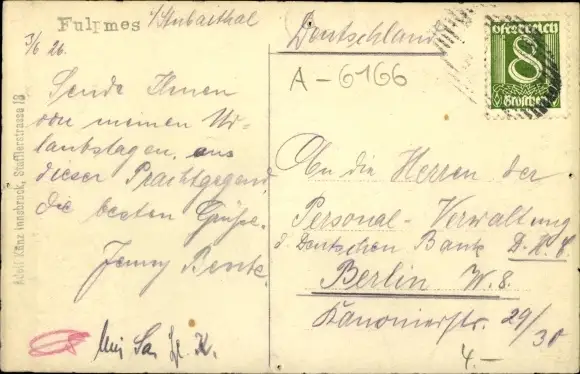 Fulpmes i/Stubaithal
3/6 26.
Sende Ihnen
von meinen Ur-
laubstagen, aus
dieser Prachtgegend,
die besten Grüße.
Jenny
Adolf Künz Innsbruck, Stafflerstrasse 18
Deutschland
A-6166
Österreich
8
Groschen
An die Herren der
Personal-Verwaltung
d. Deutschen Bank
Berlin W. 8.
Kanonierstr. 29/30
4.-